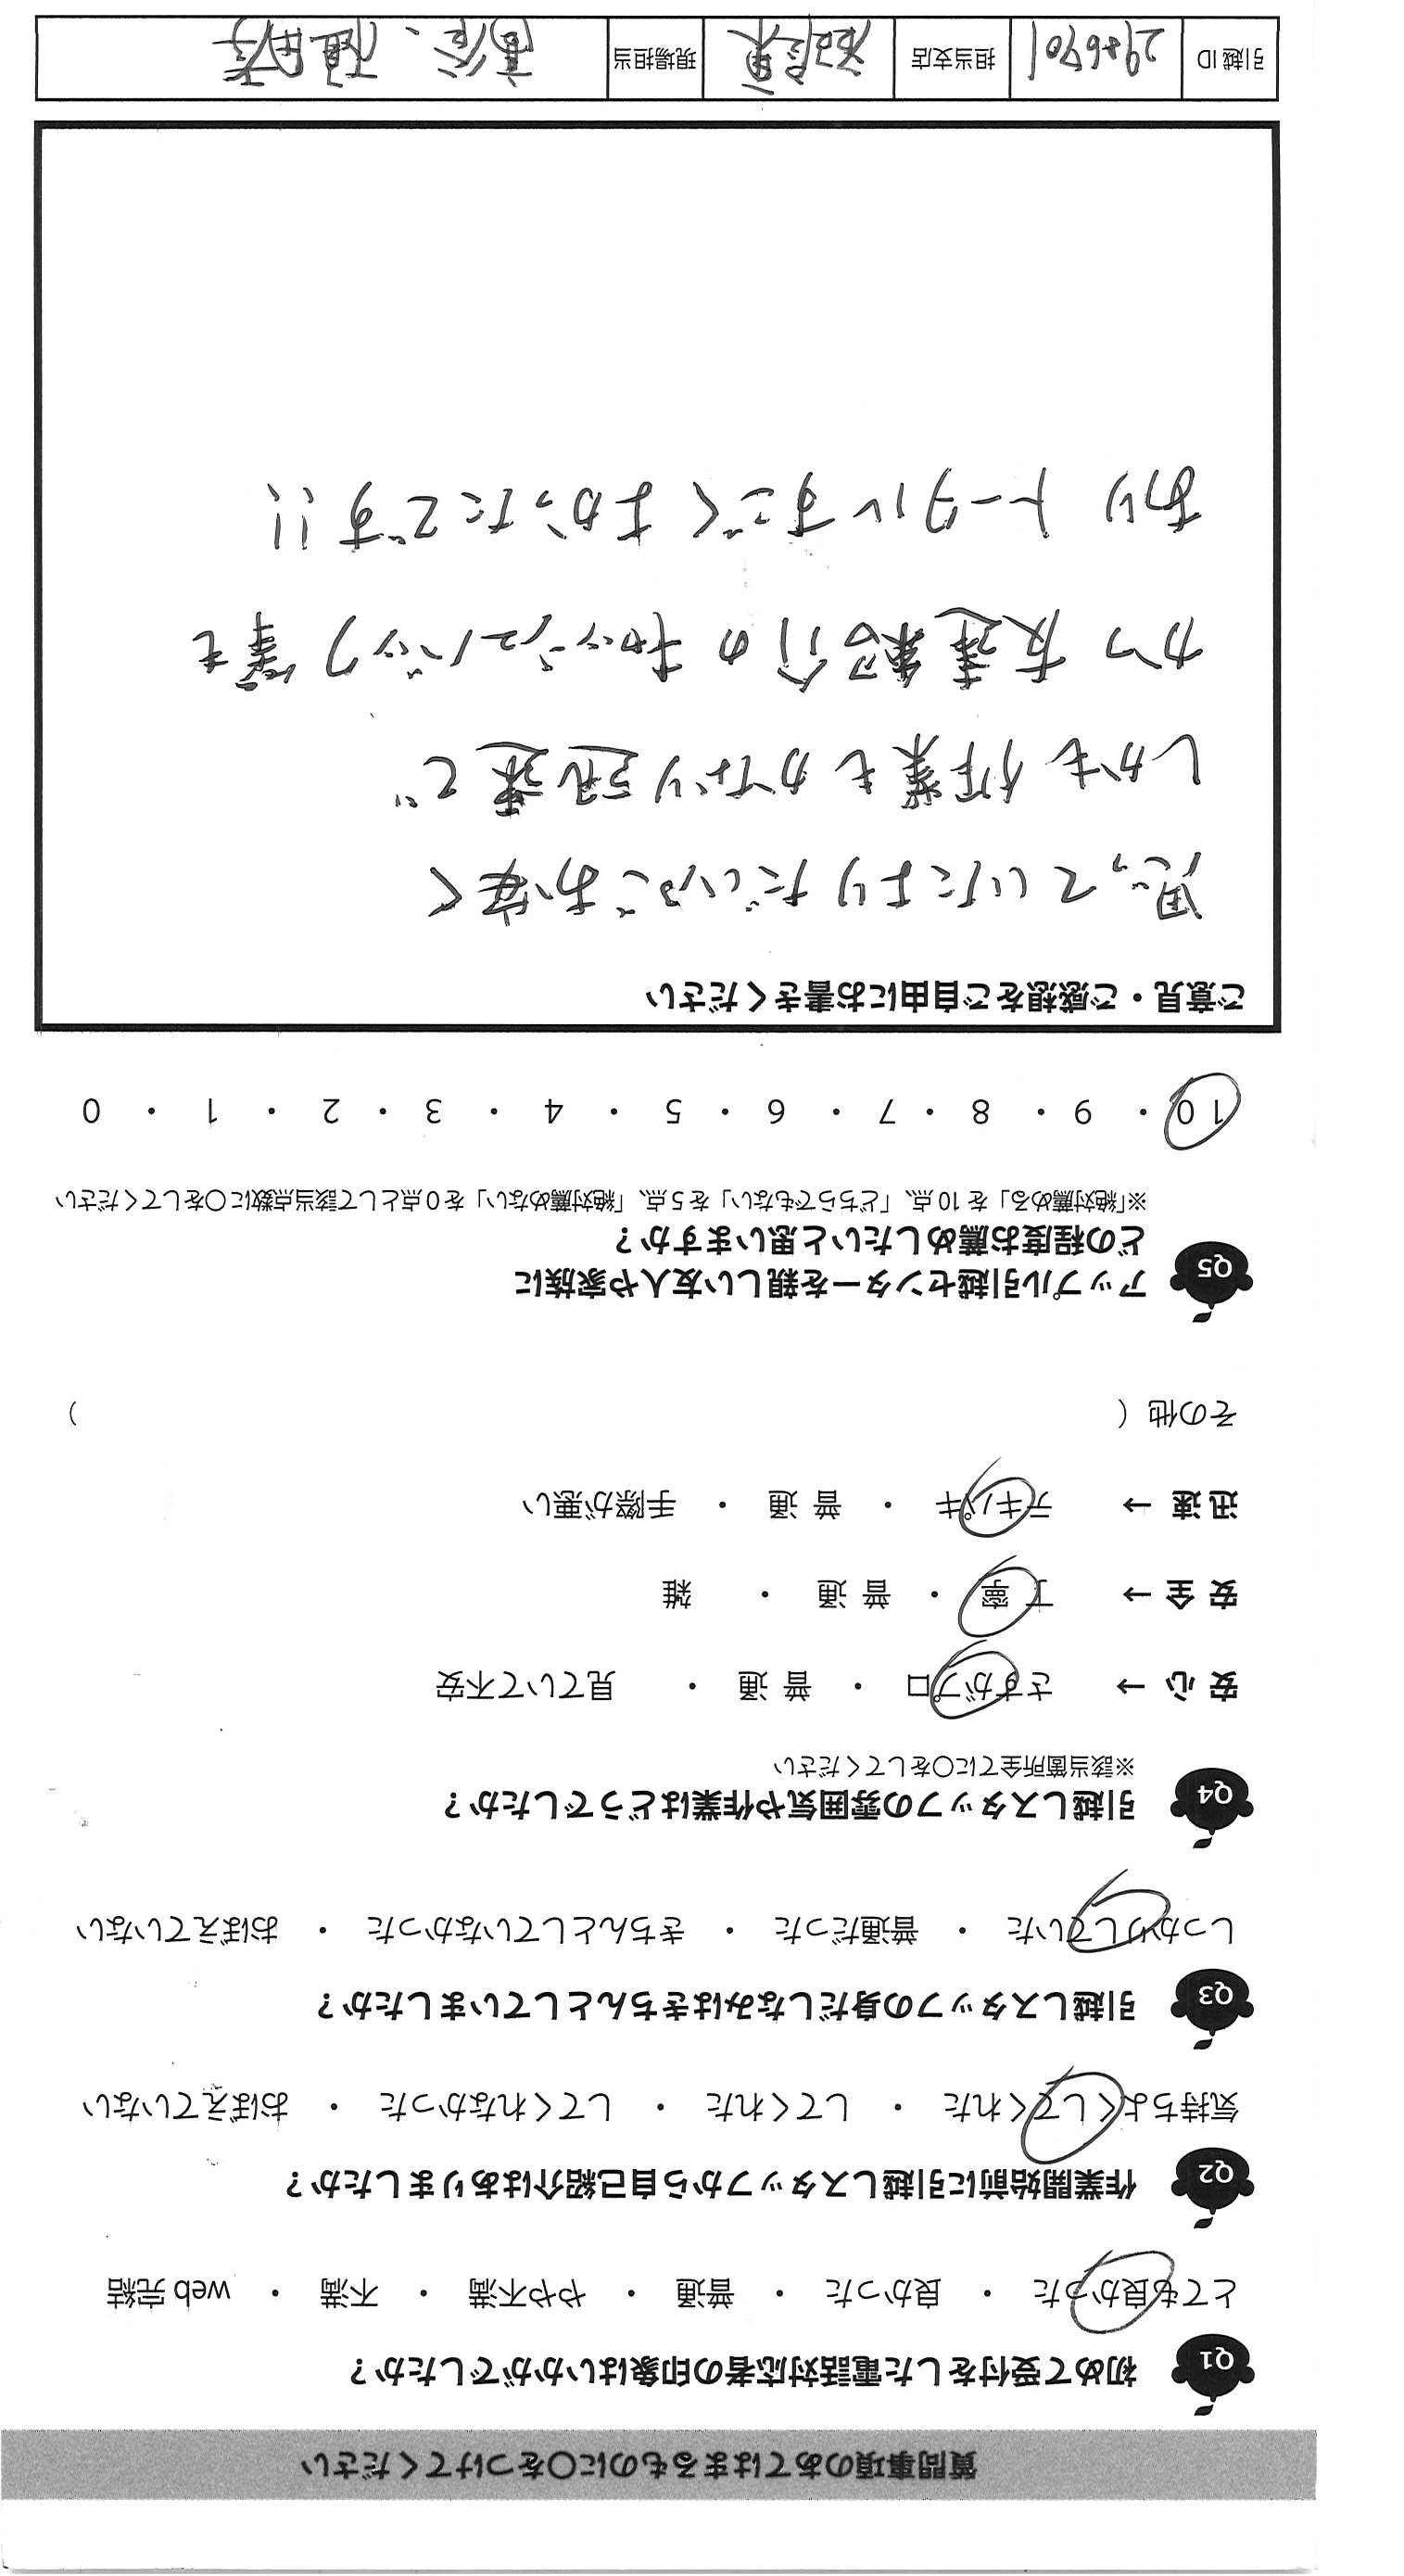 質問事項のあてはまるものに○をつけてください
Q1 初めて受付をした電話対応者の印象はいかがでしたか？
とても良かった ・ 良かった ・ 普通 ・ やや不満 ・ 不満 ・ web 完結
Q2 作業開始前に引越しスタッフから自己紹介はありましたか？
気持ちよくしてくれた ・ してくれた ・ してくれなかった ・ おぼえていない
Q3 引越しスタッフの身だしなみはきちんとしていましたか？
しっかりしていた ・ 普通だった ・ きちんとしていなかった ・ おぼえていない
Q4 引越しスタッフの雰囲気や作業はどうでしたか？
※該当箇所全てに○をしてください
安 心 → さすがプロ ・ 普 通 ・ 見ていて不安
安 全 → 丁 寧 ・ 普 通 ・ 雑
迅 速 → テキパキ ・ 普 通 ・ 手際が悪い
その他（ ）
Q5 アップル引越センターを親しい友人や家族に
どの程度お薦めしたいと思いますか？
※「絶対薦める」を 10 点、「どちらでもない」を 5 点、「絶対薦めない」を 0 点として該当点数に○をしてください
10 ・ 9 ・ 8 ・ 7 ・ 6 ・ 5 ・ 4 ・ 3 ・ 2 ・ 1 ・ 0
ご意見・ご感想をご自由にお書きください
思っていたよりだいぶお安く
しかも作業もかなり迅速で
かつ友達紹介のキャッシュバック等も
あり トータルすごくよかったです!!
引越 ID 2986901 担当支店 現場担当